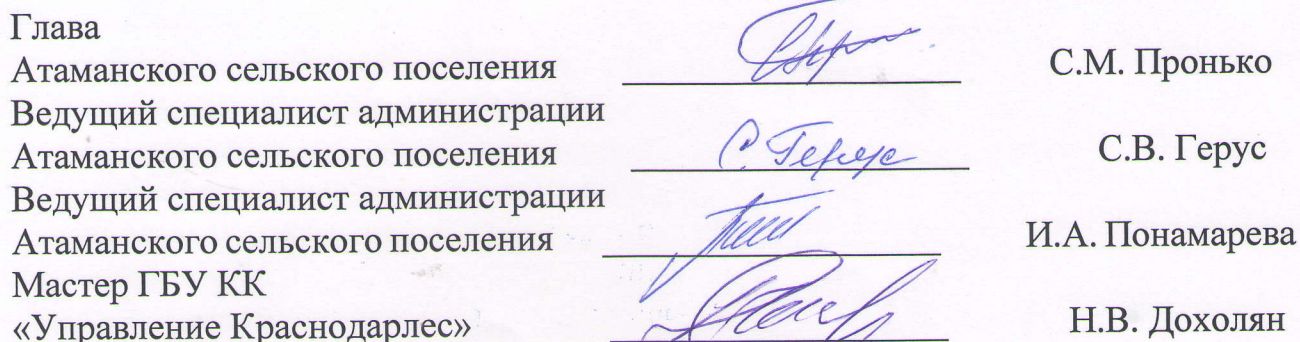 Глава
Атаманского сельского поселения С.М. Пронько
Ведущий специалист администрации
Атаманского сельского поселения С. Герус С.В. Герус
Ведущий специалист администрации
Атаманского сельского поселения И.А. Понамарева
Мастер ГБУ КК
«Управление Краснодарлес» Н.В. Дохолян